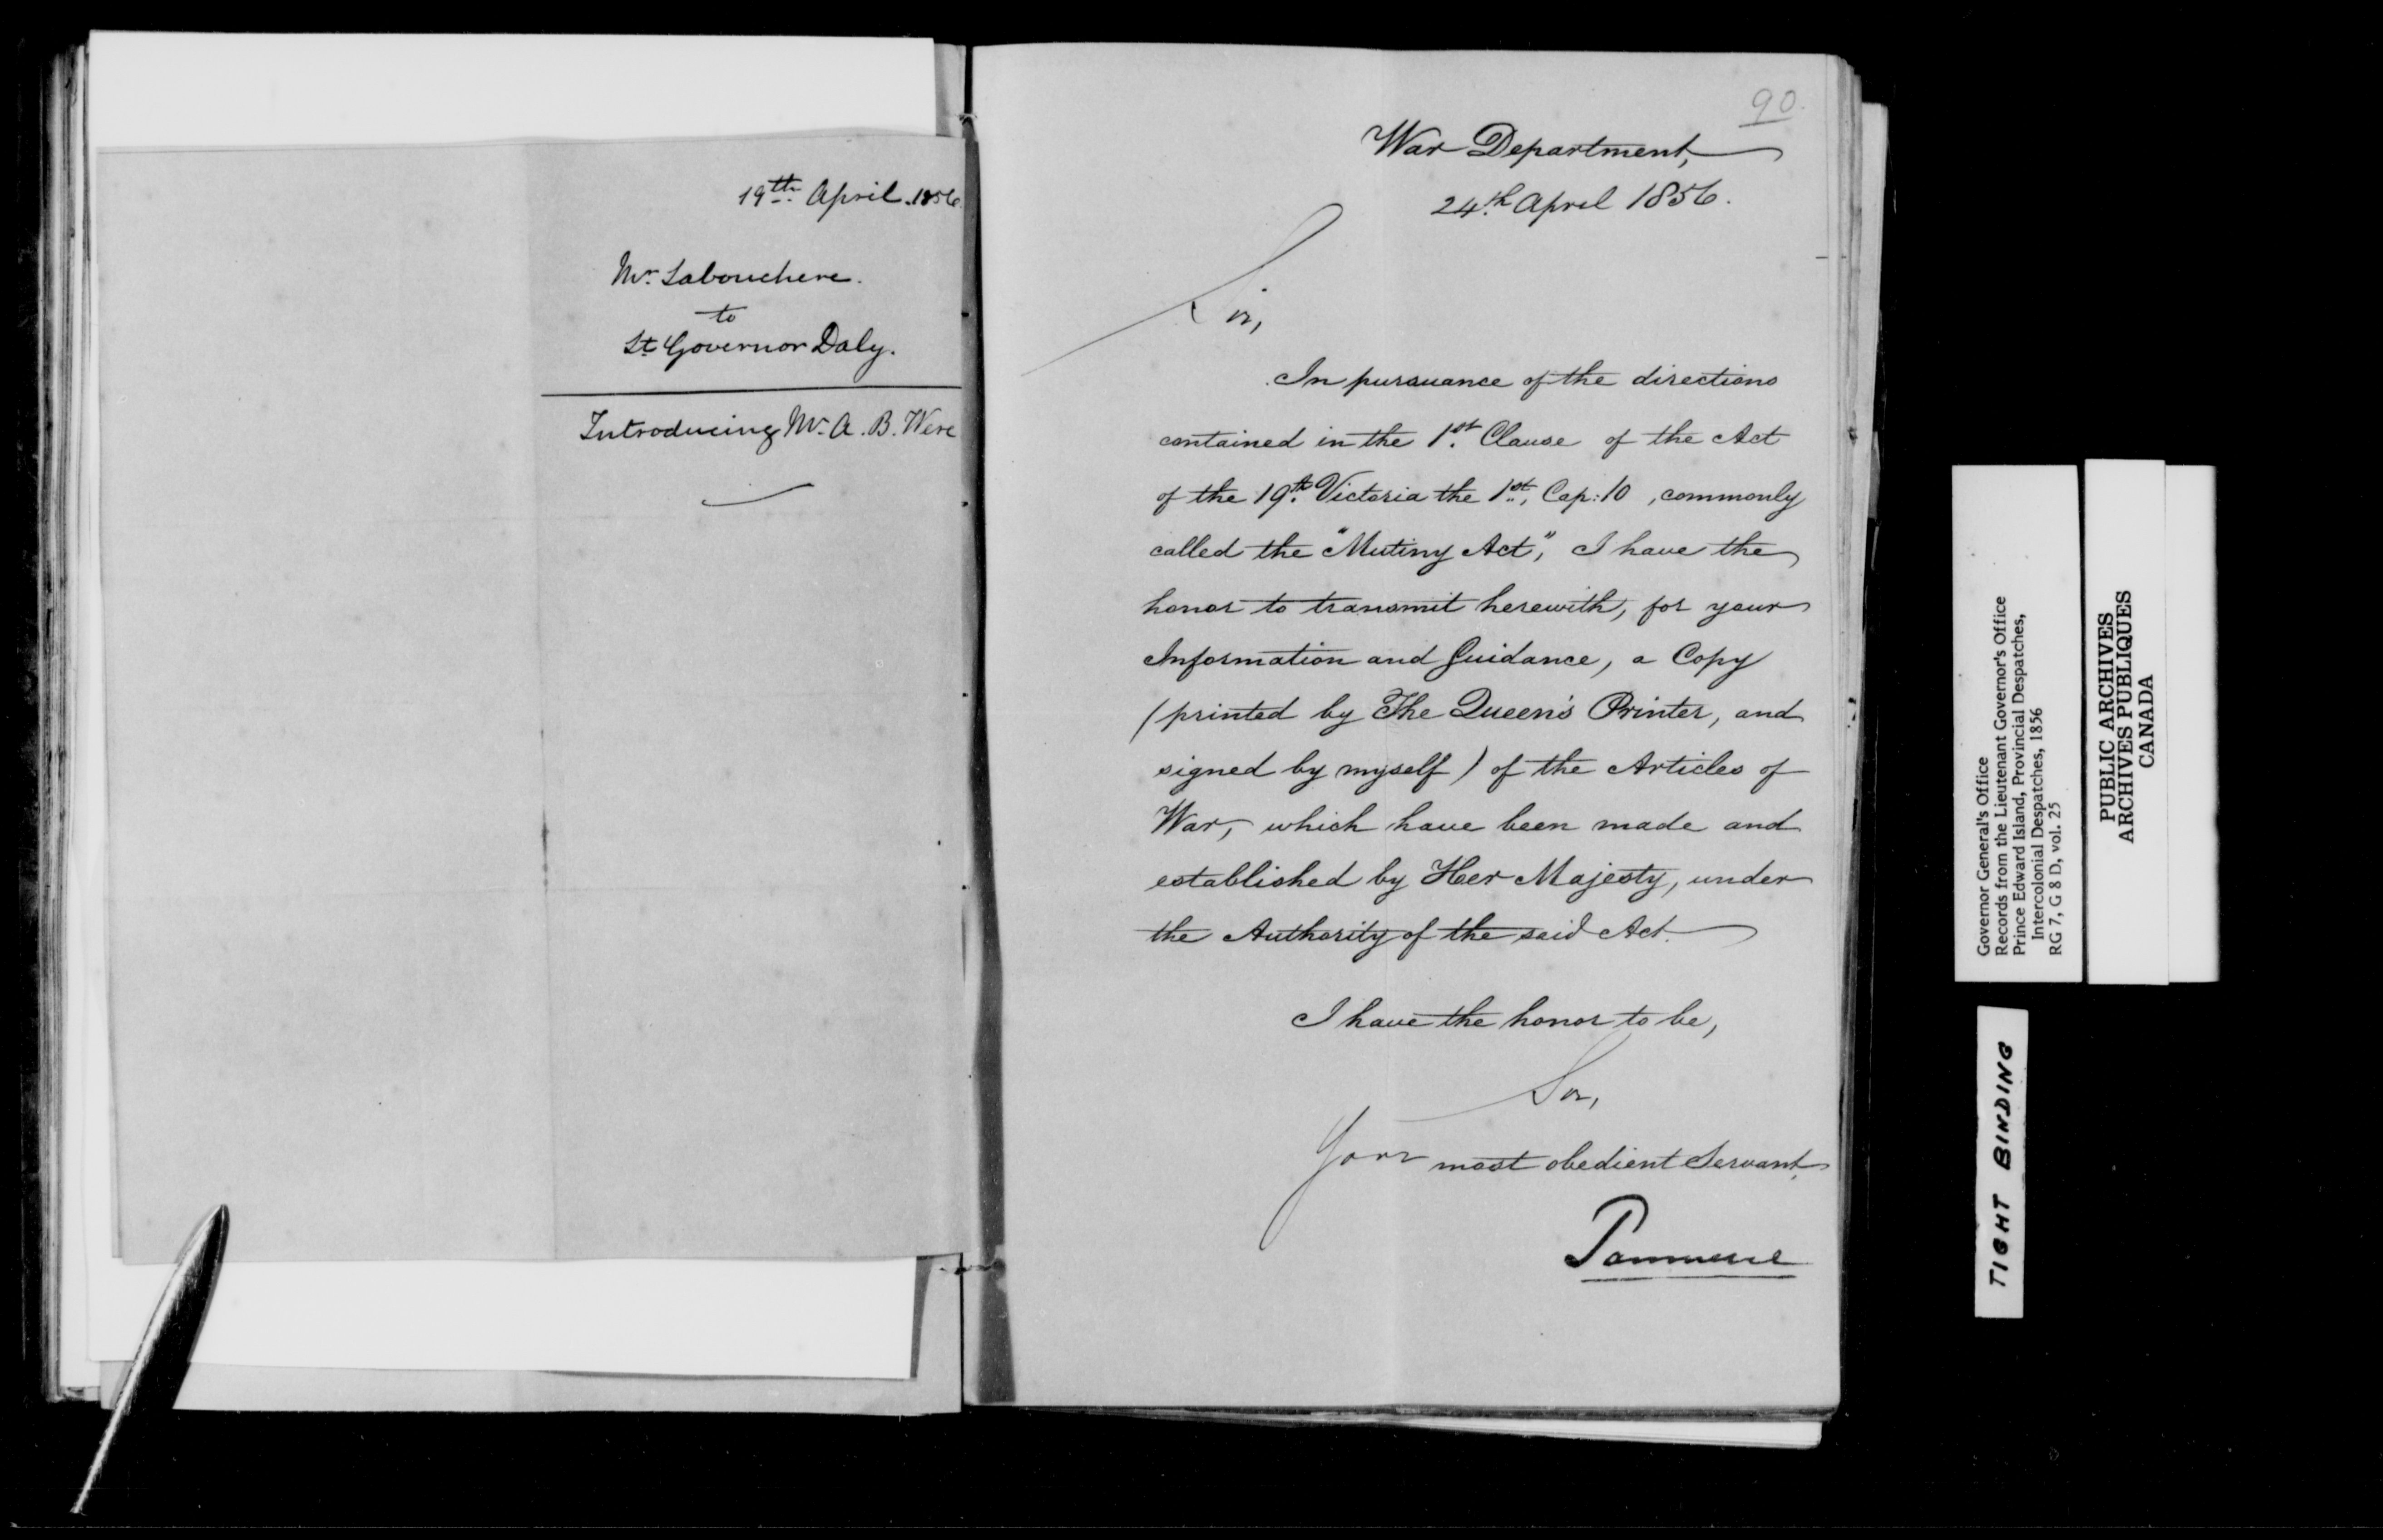 19th. April. 1856.
Mr. Labouchere.
to
Lt Governor Daly.
Introducing Mr. A. B. Were
90.
War Department,
24th. April 1856.
Sir,
In pursuance of the directions
contained in the 1st. Clause of the Act
of the 19th. Victoria the 1st., Cap: 10, commonly
called the "Mutiny Act", I have the
honor to transmit herewith, for your
Information and Guidance, a Copy
(printed by The Queen's Printer, and
signed by myself) of the Articles of
War, which have been made and
established by Her Majesty, under
the Authority of the said Act.
I have the honor to be,
Sir,
Your most obedient Servant,
Panmure
Governor General's Office
Records from the Lieutenant Governor's Office
Prince Edward Island, Provincial Despatches,
Intercolonial Despatches, 1856
RG 7, G 8 D, vol. 25
PUBLIC ARCHIVES
ARCHIVES PUBLIQUES
CANADA
TIGHT BINDING